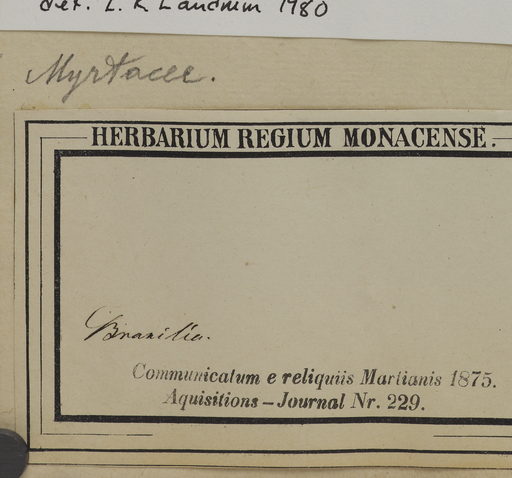 det. L. R. Landrum 1980
Myrtaceae.
HERBARIUM REGIUM MONACENSE.
Brasilia.
Communicatum e reliquiis Martianis 1875.
Aquisitions – Journal Nr. 229.